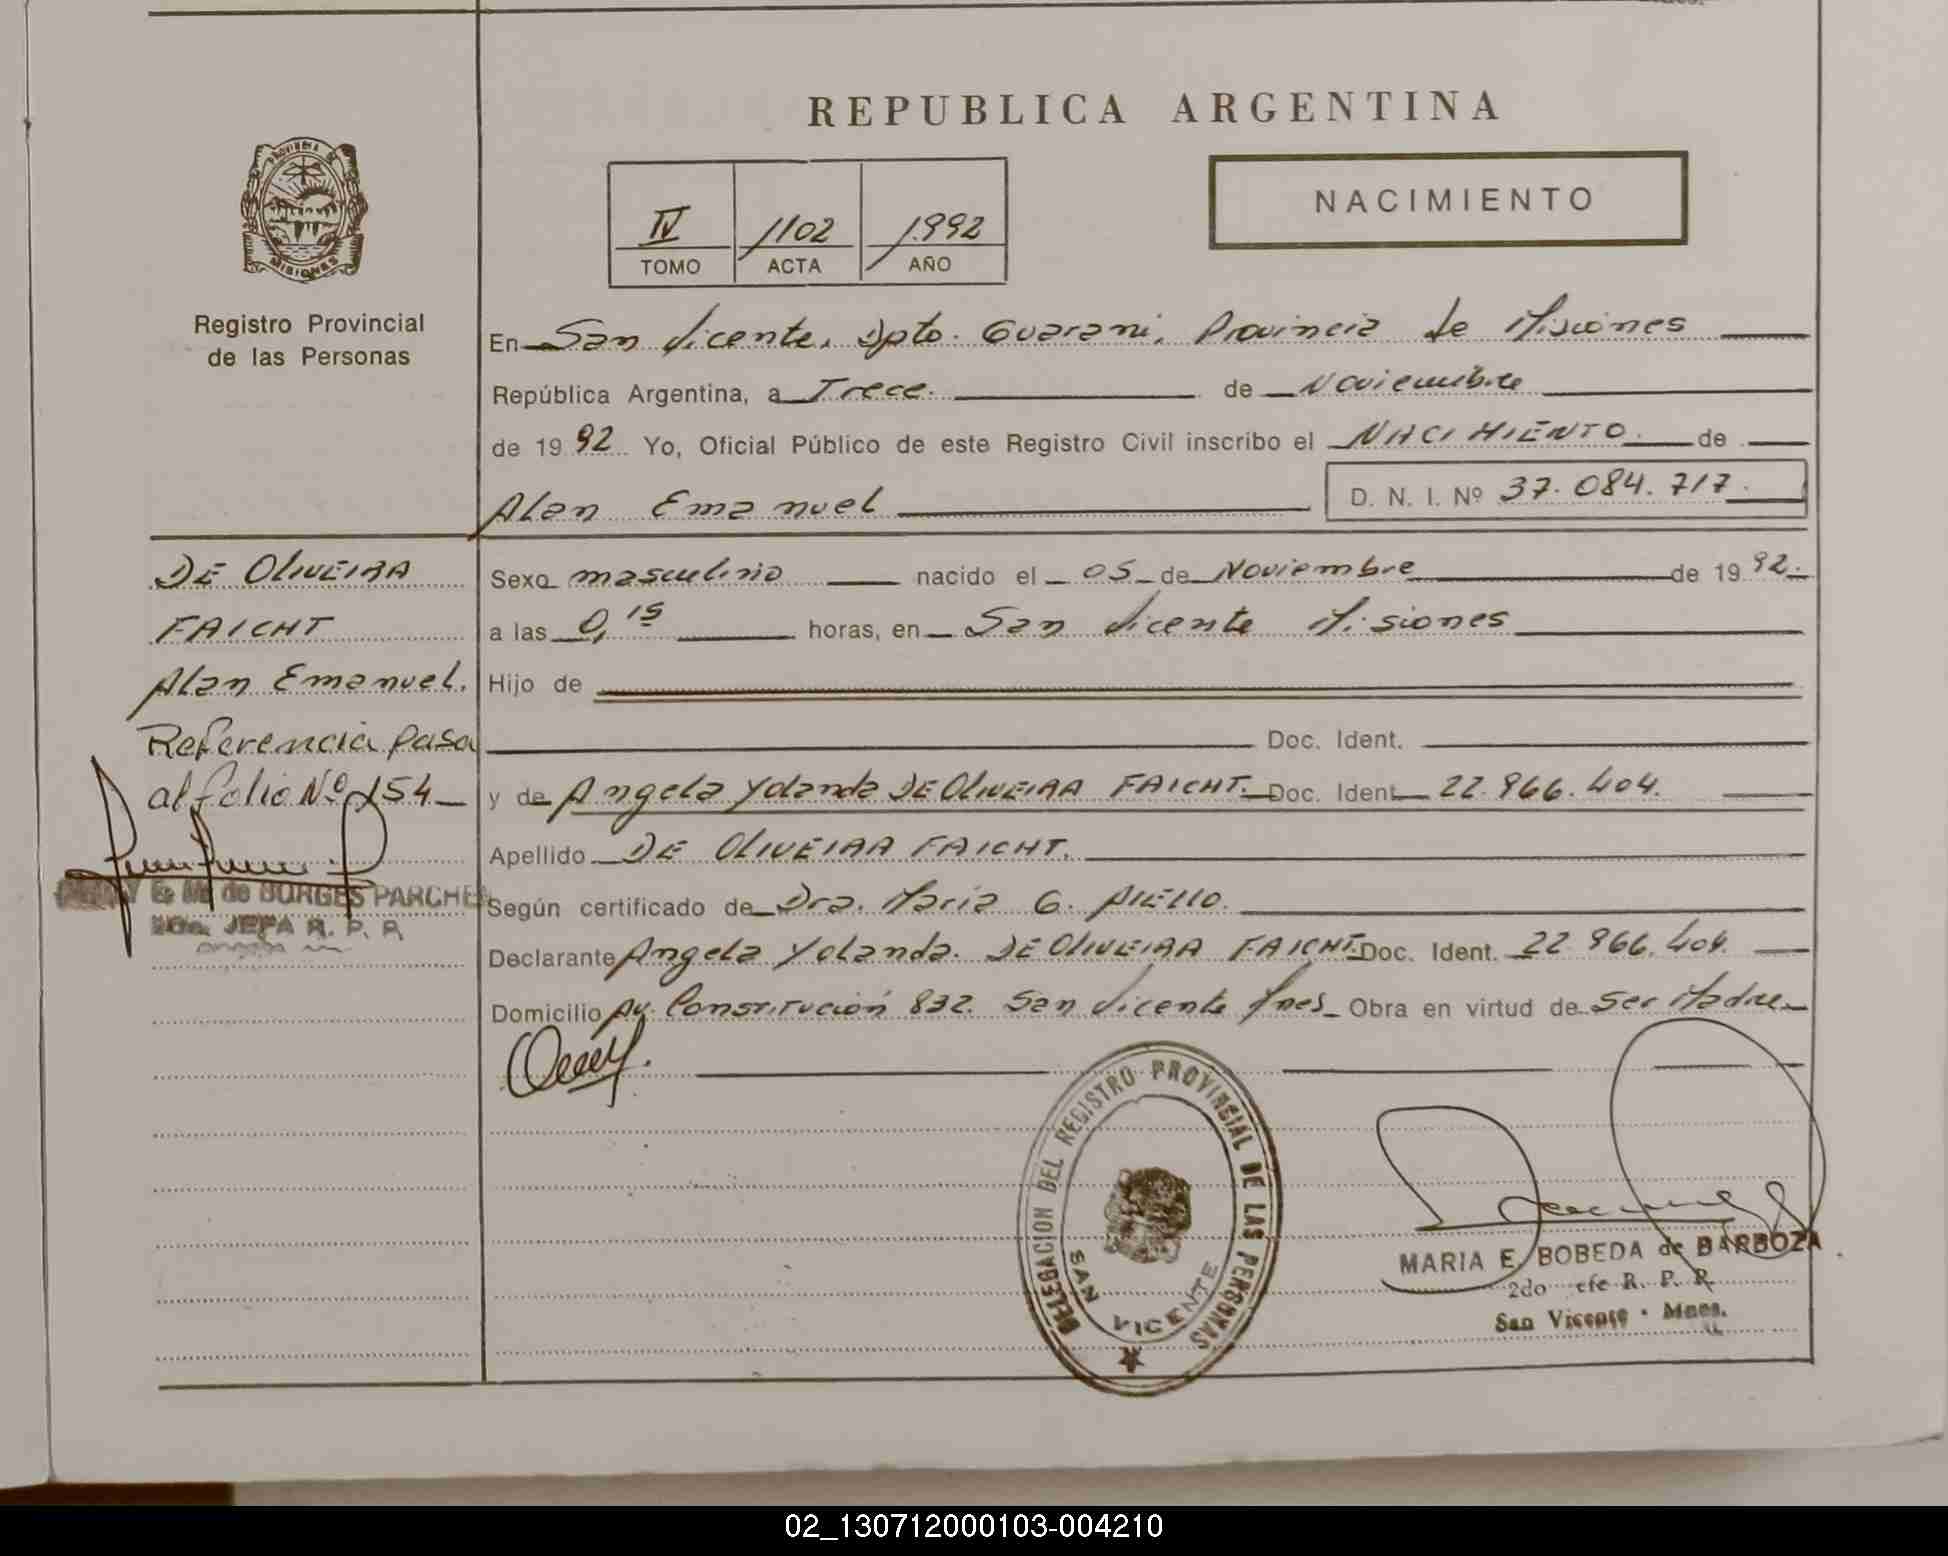 REPUBLICA ARGENTINA
PROVINCIA DE
MISIONES
Registro Provincial
de las Personas
IV 1102 1992
TOMO ACTA AÑO
NACIMIENTO
En San Vicente, Dpto. Guarani, Provincia de Misiones
República Argentina, a Trece. de Noviembre
de 1992 Yo, Oficial Público de este Registro Civil inscribo el NACIMIENTO. de
Alan Emanuel D. N. I. Nº 37.084.717.
DE OLIVEIRA
FAICHT
Alan Emanuel.
Referencia pasa
al folio Nº 154
E. M. de BORGES PARCHEN
2da. JEFA R. P. P.
Sexo masculino nacido el 05 de Noviembre de 1992.
a las 0,15 horas, en San Vicente Misiones
Hijo de
Doc. Ident.
y de Angela Yolanda DE OLIVEIRA FAICHT. Doc. Ident. 22.966.404.
Apellido DE OLIVEIRA FAICHT.
Según certificado de Dra. Maria G. AIELLO.
Declarante Angela Yolanda. DE OLIVEIRA FAICHT Doc. Ident. 22.966.404.
Domicilio Av. Constitución 832. San Vicente Mnes Obra en virtud de Ser Madre
DELEGACION DEL REGISTRO PROVINCIAL DE LAS PERSONAS
SAN VICENTE
MARIA E. BOBEDA de BARBOZA
2do efe R. P. P.
San Vicente · Mnes.
02_130712000103-004210